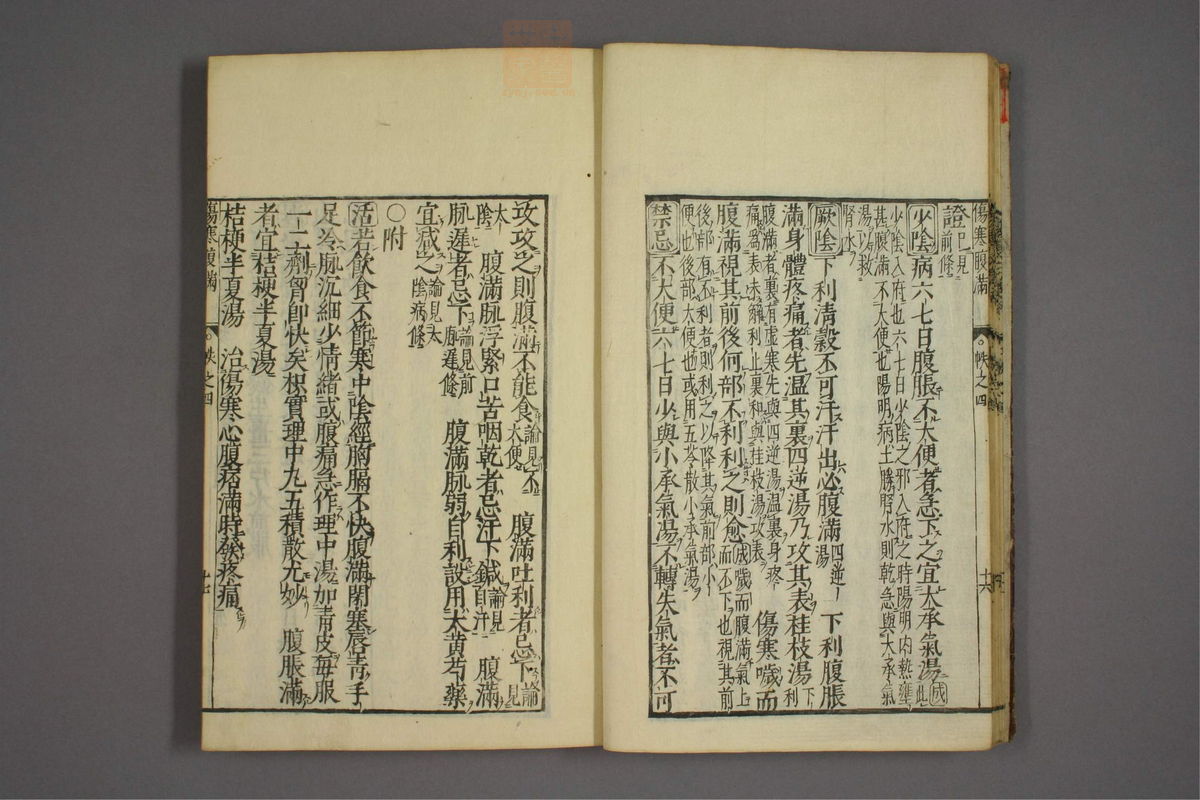 傷寒腹滿 帙之四 十六
證已見前條
少陰 病六七日腹脹不大便者急下之宜大承氣湯 成 此
少陰入府也六七日少陰之邪入府之時陽明內熱壅
甚腹滿不大便也陽明病土勝腎水則乾急與大承氣
湯以救
腎水
厥陰 下利清穀不可汗汗出必腹滿 四逆湯 下利腹脹
滿身體疼痛者先溫其裏四逆湯乃攻其表桂枝湯 下利
腹滿者裏有虛寒先與四逆湯溫裏身疼
痛爲表未解利止裏和與桂枝湯攻表 傷寒噦而
腹滿視其前後何部不利利之則愈 成噦而腹滿氣上
而不下也視其前
後部有不利者則利之以降其氣前部小
便也後部大便也或用五苓散小承氣湯
禁忌 不大便六七日少與小承氣湯不轉失氣者不可
攻攻之則腹滿不能食 論見不大便 腹滿吐利者忌下 論見
太陰 腹滿脉浮緊口苦咽乾者忌汗下鍼 論見自汗 腹滿
脉遲者忌下 論見前脉遲條 腹滿脉弱自利設用大黄芍藥
宜减之 論見太陰病條
○附
活 若飲食不節寒中陰經胸膈不快腹滿閉塞唇青手
足冷脉沉細少情緒或腹痛急作理中湯加青皮每服
一二劑胷卽快矣枳實理中丸五積散尤妙 腹脹滿
者宜桔梗半夏湯
桔梗半夏湯 治傷寒心腹痞滿時發疼痛
傷寒腹滿 帙之四 十七